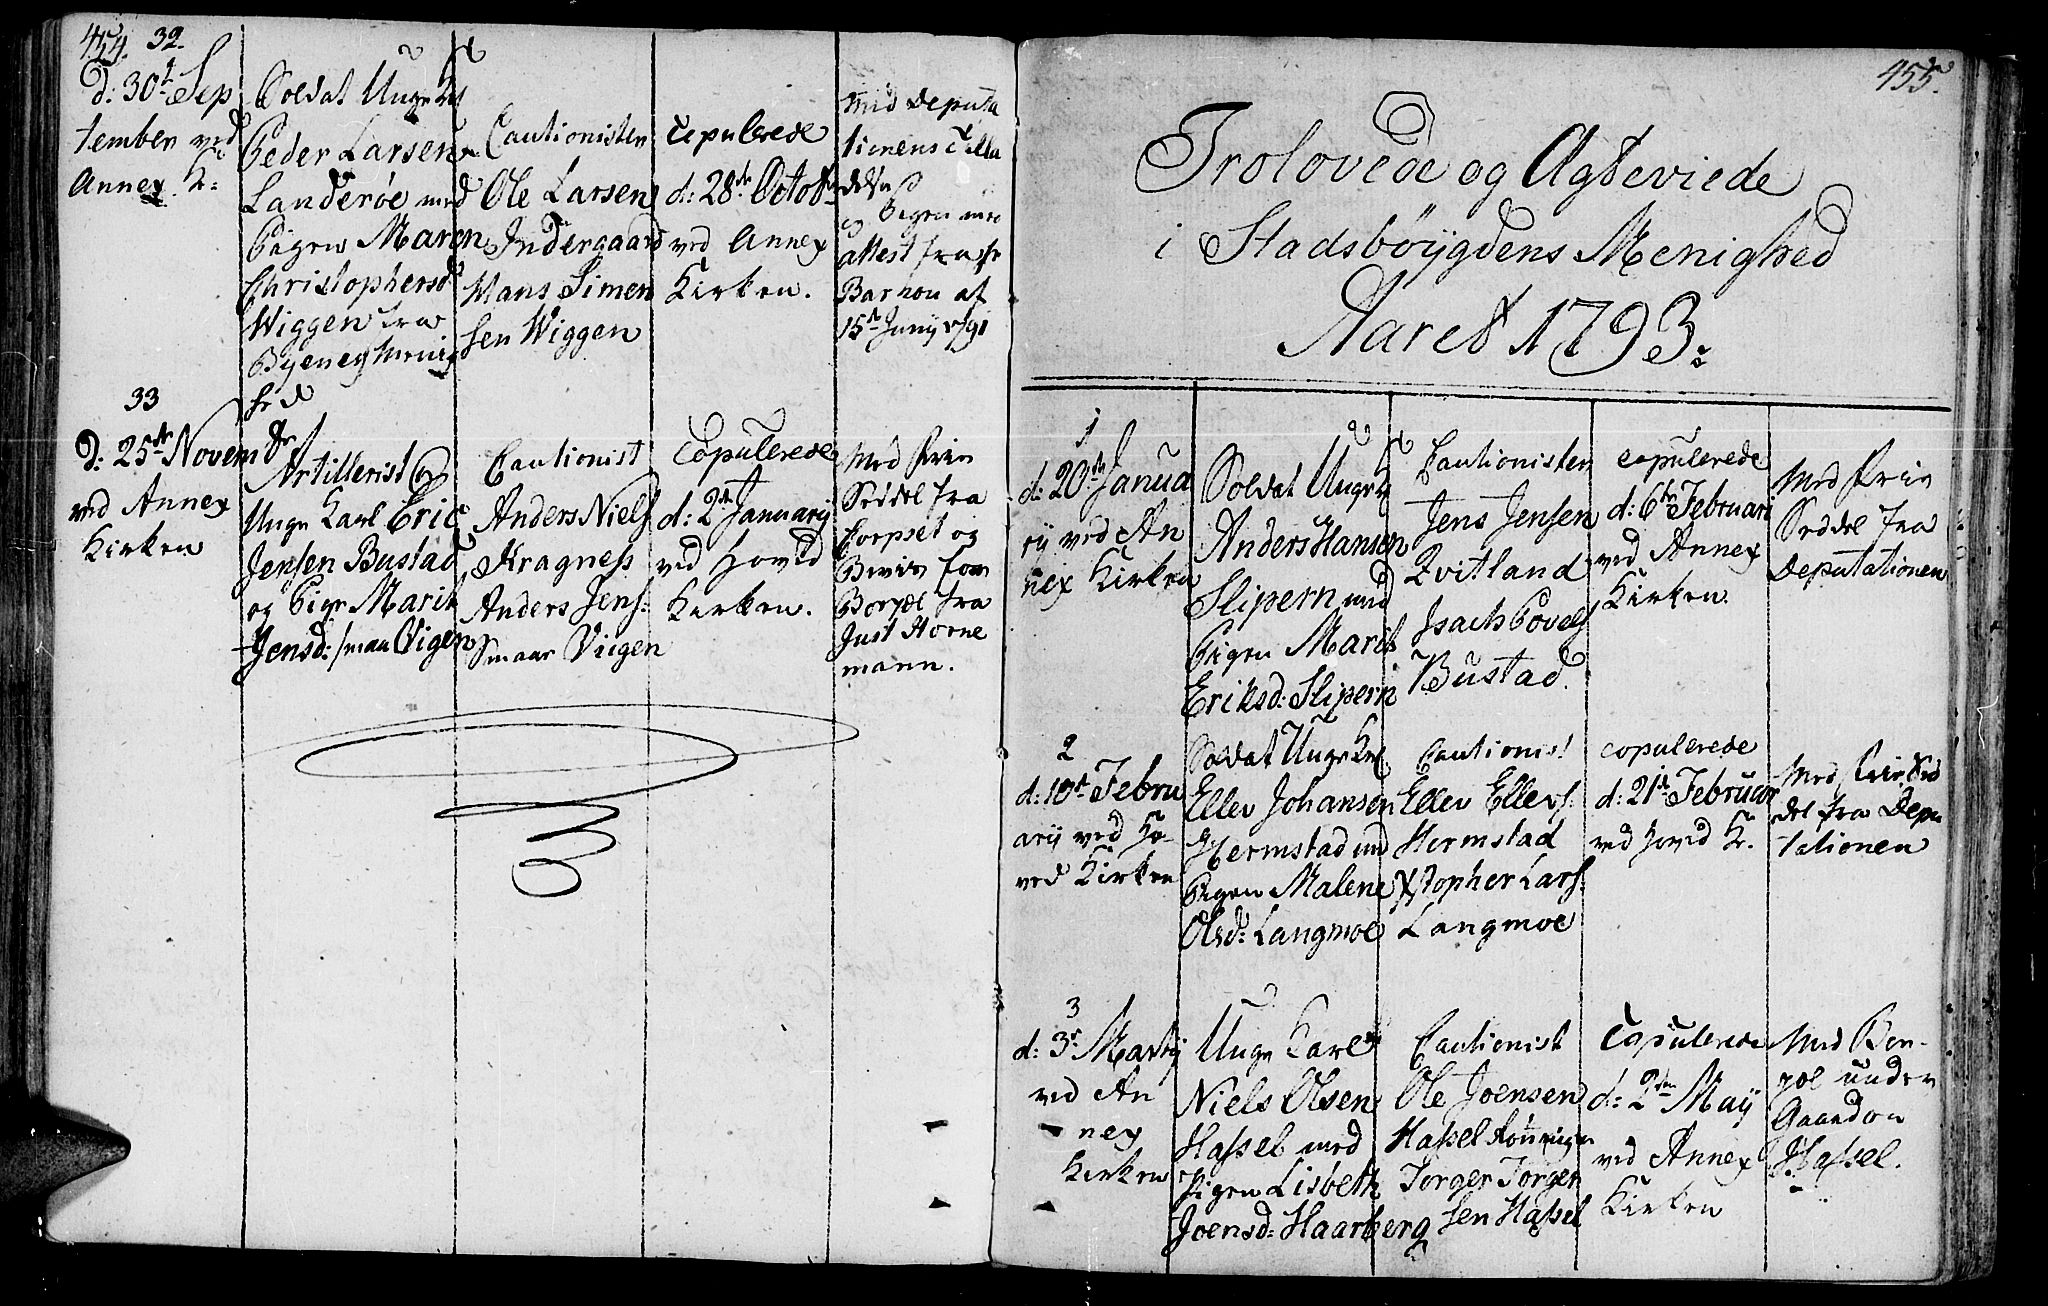 454.
32.
d: 30t Sep
tember ved
Annex K:
Soldat Unge K
Peder Larsen
Landerøe med
Pigen Maren
Christophersd
Wiggen fra
Byenes Menig
hed
Cautionister
Ole Larsen
Indergaard
Hans Simen
sen Wiggen
Copulerede
d: 28de Octob
ved Annex
Kirken.
Med Deputa
tionens Tilla
delse
Pigen med
attest fra hr
Barhou af
15de Junij 1791
33
d: 25de Novembr
ved Annex
Kirken
Artillerist
Unge Karl Eric
Jensen Bustad
og Pige Marit
Jensd: smaa Vigen
Cautionist
Anders Niels
Kragness
Anders Jens:
Smaae Viigen
Copulerede
d: 2de Januarij
ved Hoved
Kirken.
Med Friee
Seddel fra
Corpset og
Beviis for
Borpæl fra
Just Horne
mann.
455.
Trolovede og Ægteviede
i Stadsböygdens Menighed
Aaret 1793.
1
d: 20de Janua
rij ved An
nex Kirken
Soldat Unge K
Anders Hansen
Slipern med
Pigen Marit
Eriksd: Slipern
Cautionister
Jens Jensen
Qvitland
Isach Povels
Bustad.
copulerede
d: 6te Februari
ved Annex
Kirken.
Med Frie
Seddel fra
Deputationen
2
d: 10de Febru
arij ved Ho-
ved Kirken
Soldat Unge Kl
Eller Johansen
Hermstad med
Pigen Malene
Olsd: Langmoe
Cautionist
Eller Ellers:
Hermstad
Xstopher Lars:
Langmoe
copulerede
d: 21de Februar
ved Hoved K.
Med Frie Sed
del fra Depu
tationen
3
d: 3de Martij
ved An
nex
Kirken
Unge Karl
Niels Olsen
Hassel med
Pigen Lisbeth
Joensd: Haarberg
Cautionist
Ole Joensen
Hassel
Torger Torger
sen Hassel
Copulerede
d: 2den May
ved Annex
Kirken
Med Bor-
pæl under
Gaarden
Hassel.